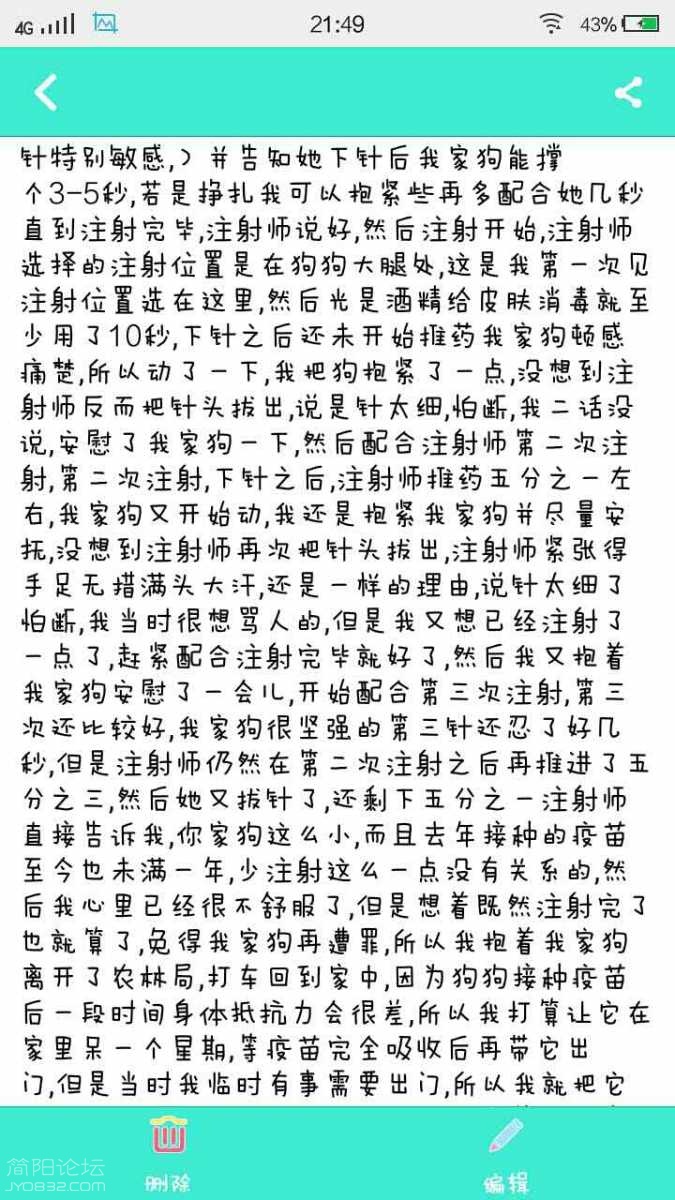 4G
21:49
43%
针特别敏感,）并告知她下针后我家狗能撑
个3-5秒,若是挣扎我可以抱紧些再多配合她几秒
直到注射完毕,注射师说好,然后注射开始,注射师
选择的注射位置是在狗狗大腿处,这是我第一次见
注射位置选在这里,然后光是酒精给皮肤消毒就至
少用了10秒,下针之后还未开始推药我家狗顿感
痛楚,所以动了一下,我把狗抱紧了一点,没想到注
射师反而把针头拔出,说是针太细,怕断,我二话没
说,安慰了我家狗一下,然后配合注射师第二次注
射,第二次注射,下针之后,注射师推药五分之一左
右,我家狗又开始动,我还是抱紧我家狗并尽量安
抚,没想到注射师再次把针头拔出,注射师紧张得
手足无措满头大汗,还是一样的理由,说针太细了
怕断,我当时很想骂人的,但是我又想已经注射了
一点了,赶紧配合注射完毕就好了,然后我又抱着
我家狗安慰了一会儿,开始配合第三次注射,第三
次还比较好,我家狗很坚强的第三针还忍了好几
秒,但是注射师仍然在第二次注射之后再推进了五
分之三,然后她又拔针了,还剩下五分之一注射师
直接告诉我,你家狗这么小,而且去年接种的疫苗
至今也未满一年,少注射这么一点没有关系的,然
后我心里已经很不舒服了,但是想着既然注射完了
也就算了,免得我家狗再遭罪,所以我抱着我家狗
离开了农林局,打车回到家中,因为狗狗接种疫苗
后一段时间身体抵抗力会很差,所以我打算让它在
家里呆一个星期,等疫苗完全吸收后再带它出
门,但是当时我临时有事需要出门,所以我就把它
删除
编辑
简阳论坛
JY0832.com